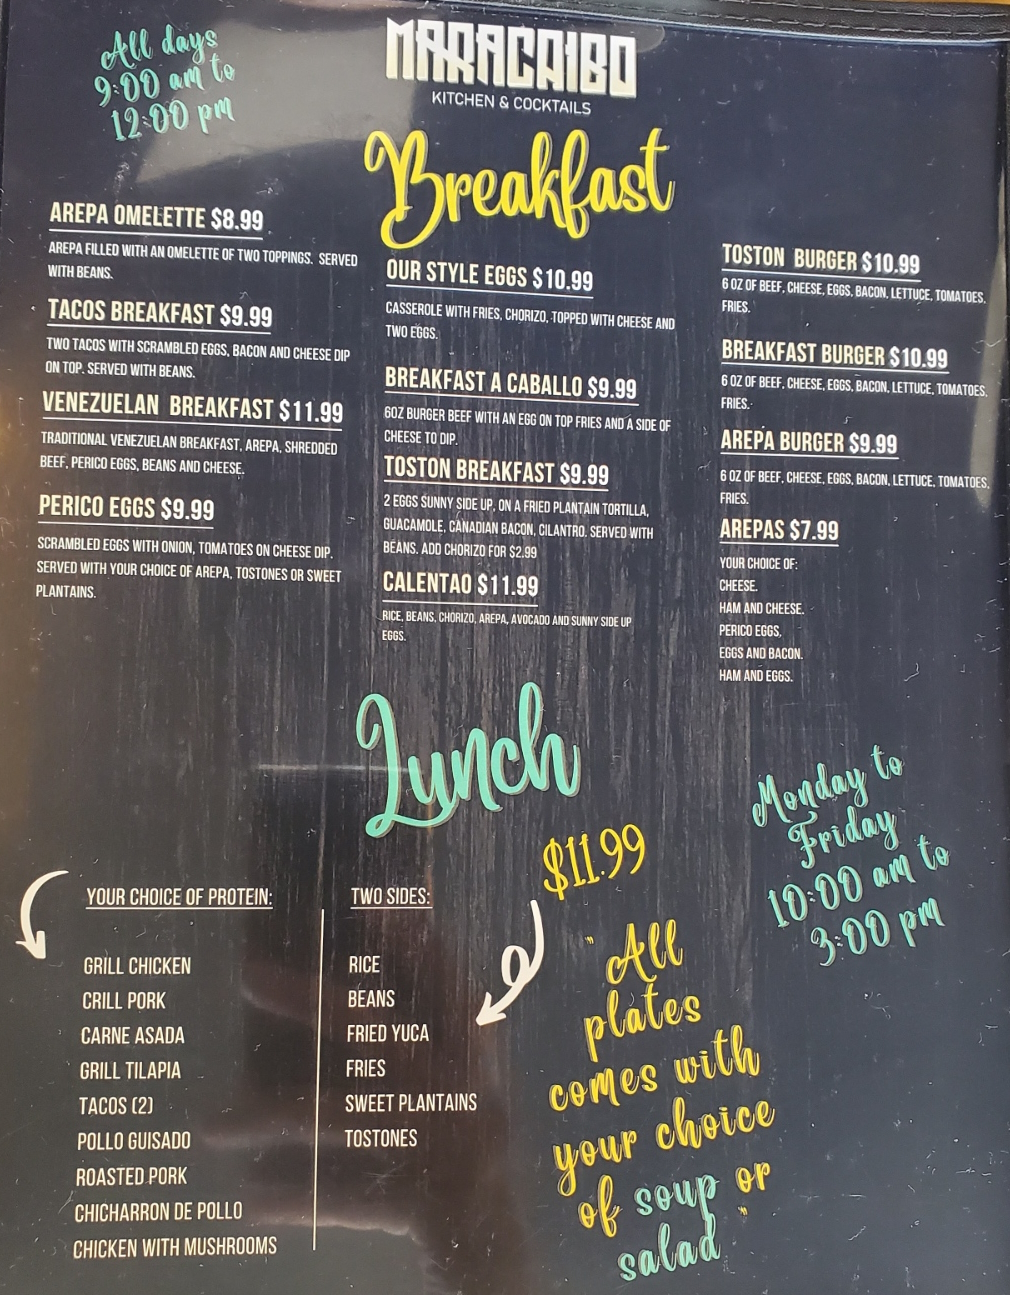 All days
9:00 am to
12:00 pm
MARACAIBO
KITCHEN & COCKTAILS
Breakfast
AREPA OMELETTE $8.99
AREPA FILLED WITH AN OMELETTE OF TWO TOPPINGS. SERVED
WITH BEANS.
TACOS BREAKFAST $9.99
TWO TACOS WITH SCRAMBLED EGGS, BACON AND CHEESE DIP
ON TOP. SERVED WITH BEANS.
VENEZUELAN BREAKFAST $11.99
TRADITIONAL VENEZUELAN BREAKFAST, AREPA, SHREDDED
BEEF, PERICO EGGS, BEANS AND CHEESE.
PERICO EGGS $9.99
SCRAMBLED EGGS WITH ONION, TOMATOES ON CHEESE DIP.
SERVED WITH YOUR CHOICE OF AREPA, TOSTONES OR SWEET
PLANTAINS.
OUR STYLE EGGS $10.99
CASSEROLE WITH FRIES, CHORIZO, TOPPED WITH CHEESE AND
TWO EGGS.
BREAKFAST A CABALLO $9.99
6OZ BURGER BEEF WITH AN EGG ON TOP FRIES AND A SIDE OF
CHEESE TO DIP.
TOSTON BREAKFAST $9.99
2 EGGS SUNNY SIDE UP, ON A FRIED PLANTAIN TORTILLA,
GUACAMOLE, CANADIAN BACON, CILANTRO. SERVED WITH
BEANS. ADD CHORIZO FOR $2.99
CALENTAO $11.99
RICE, BEANS, CHORIZO, AREPA, AVOCADO AND SUNNY SIDE UP
EGGS.
TOSTON BURGER $10.99
6 OZ OF BEEF, CHEESE, EGGS, BACON, LETTUCE, TOMATOES,
FRIES.
BREAKFAST BURGER $10.99
6 OZ OF BEEF, CHEESE, EGGS, BACON, LETTUCE, TOMATOES,
FRIES.
AREPA BURGER $9.99
6 OZ OF BEEF, CHEESE, EGGS, BACON, LETTUCE, TOMATOES,
FRIES.
AREPAS $7.99
YOUR CHOICE OF:
CHEESE.
HAM AND CHEESE.
PERICO EGGS.
EGGS AND BACON.
HAM AND EGGS.
Lunch
$11.99
Monday to
Friday
10:00 am to
3:00 pm
YOUR CHOICE OF PROTEIN:
GRILL CHICKEN
CRILL PORK
CARNE ASADA
GRILL TILAPIA
TACOS (2)
POLLO GUISADO
ROASTED PORK
CHICHARRON DE POLLO
CHICKEN WITH MUSHROOMS
TWO SIDES:
RICE
BEANS
FRIED YUCA
FRIES
SWEET PLANTAINS
TOSTONES
" All
plates
comes with
your choice
of soup or
salad "